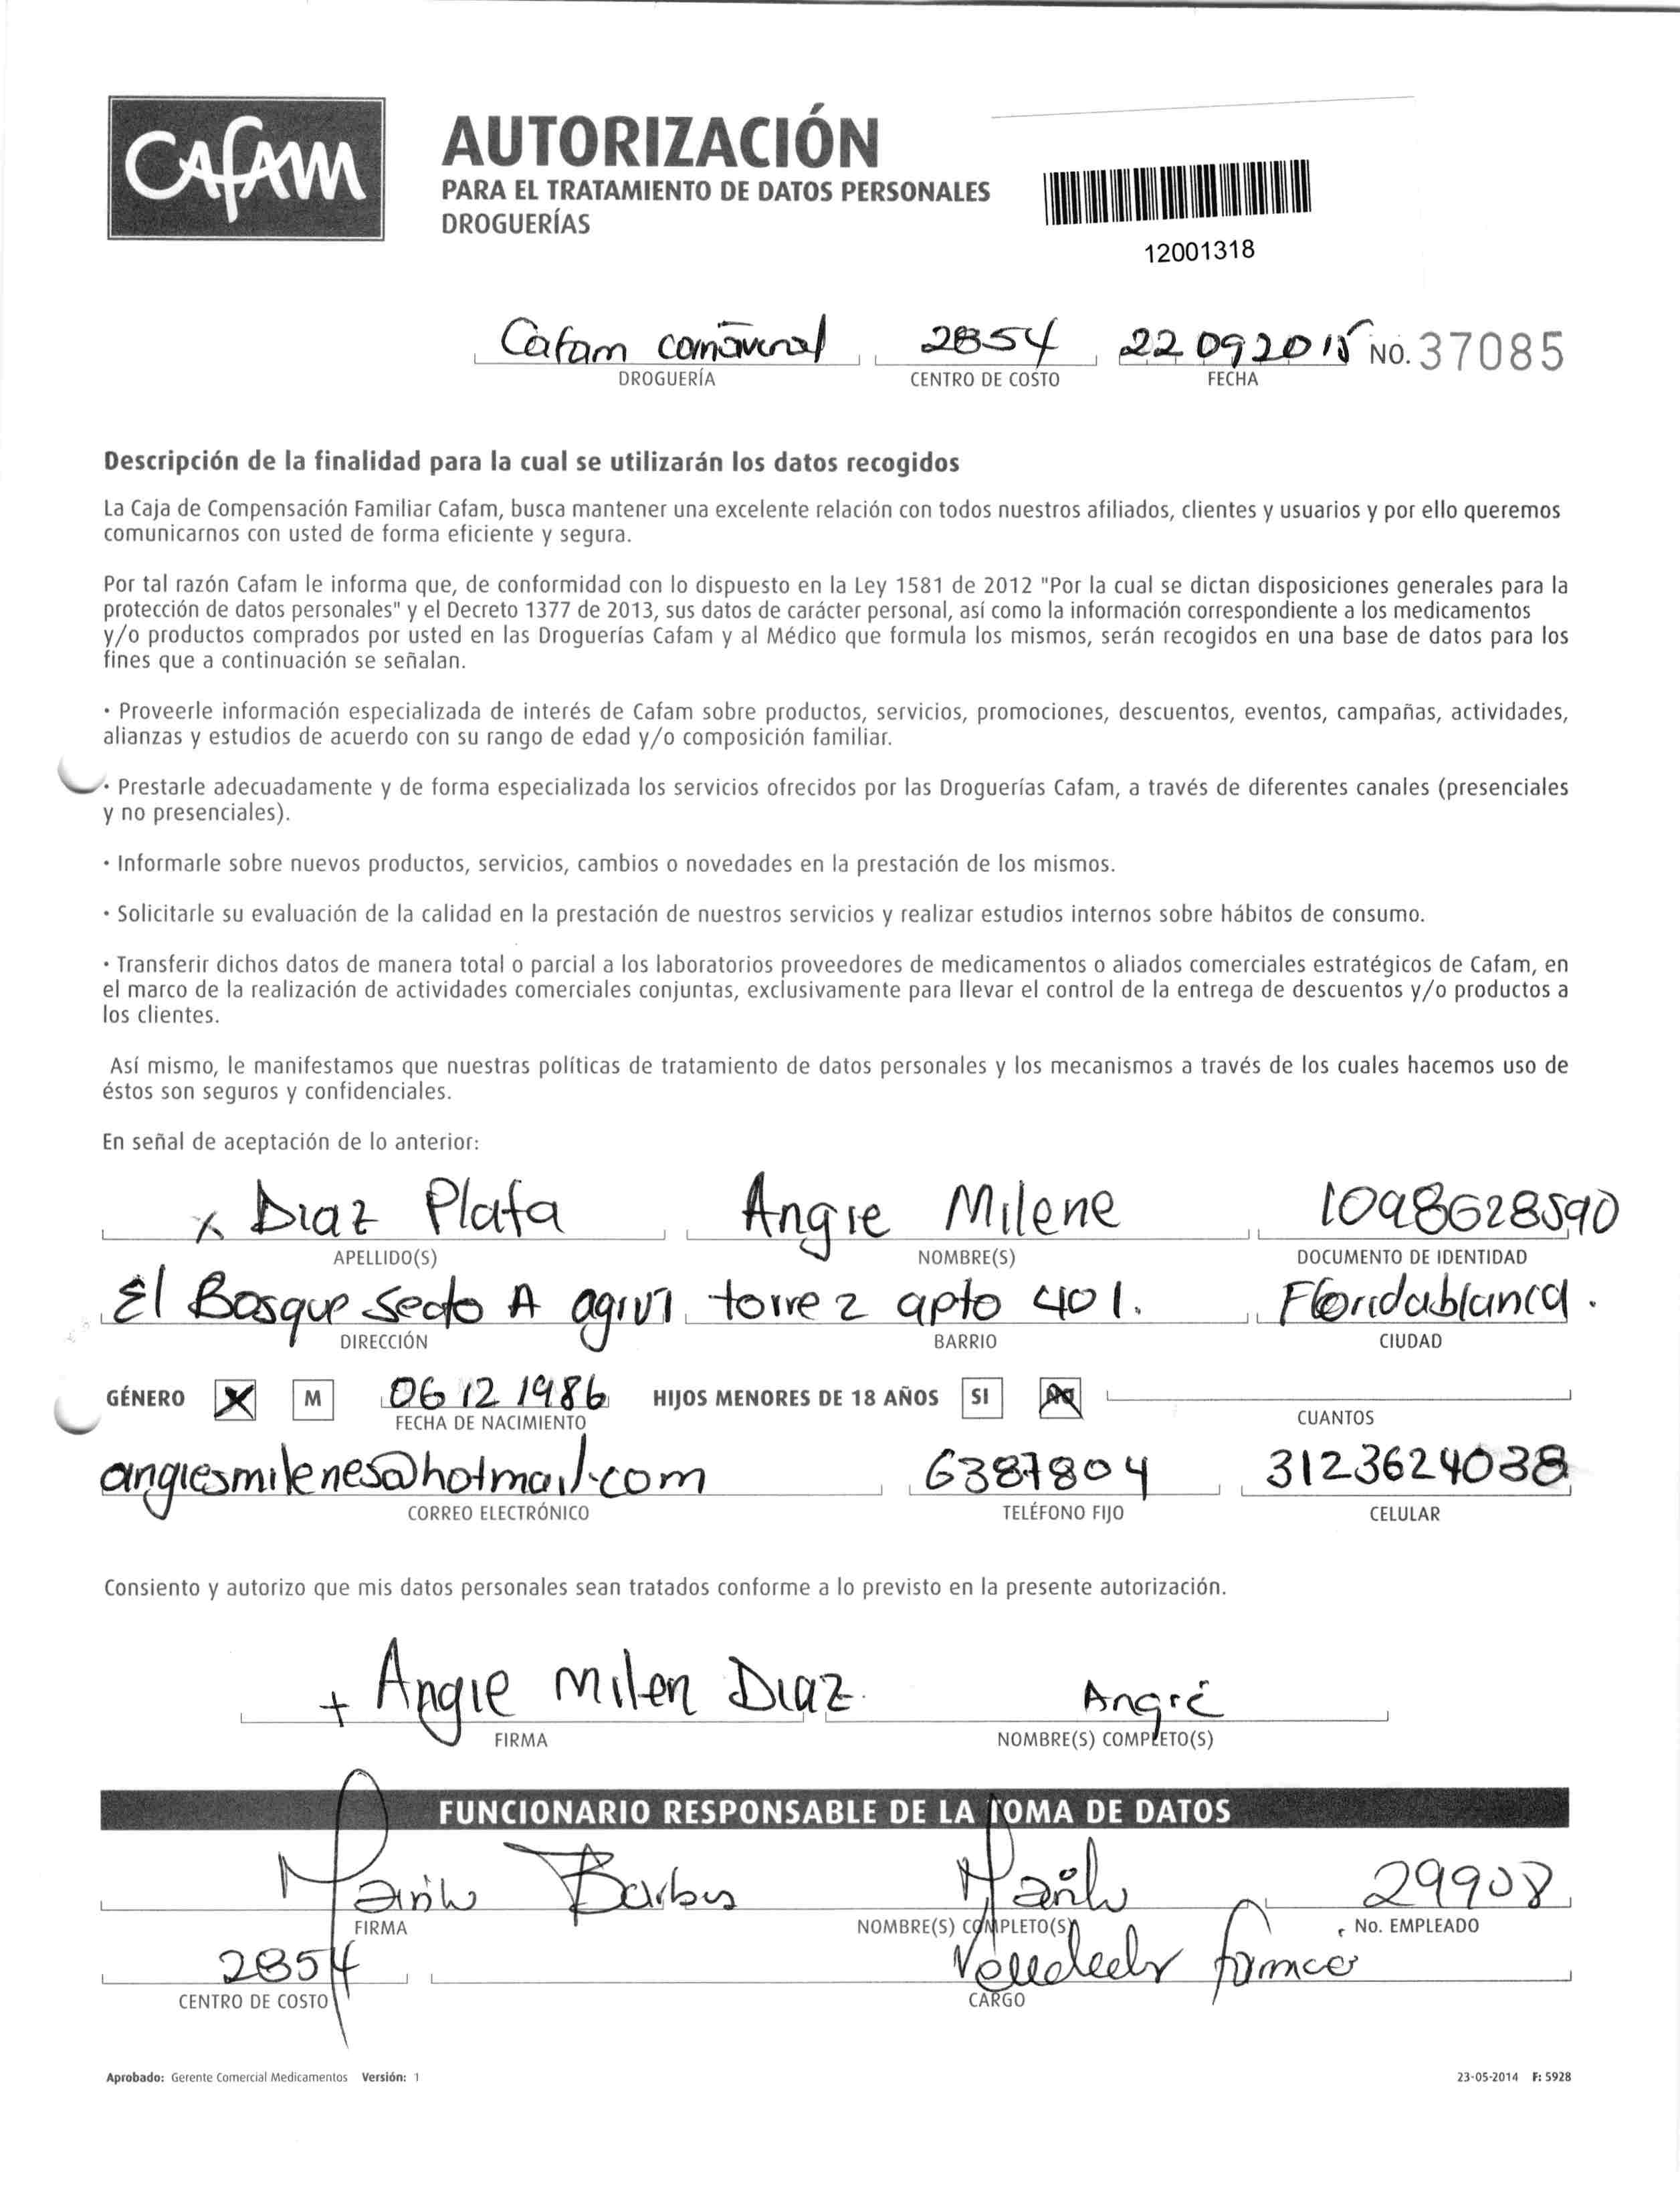 CAFAM
AUTORIZACIÓN
PARA EL TRATAMIENTO DE DATOS PERSONALES
DROGUERÍAS
12001318
Cafam cañaveral 2854 22 09 2015 NO. 37085
DROGUERÍA CENTRO DE COSTO FECHA
Descripción de la finalidad para la cual se utilizarán los datos recogidos
La Caja de Compensación Familiar Cafam, busca mantener una excelente relación con todos nuestros afiliados, clientes y usuarios y por ello queremos
comunicarnos con usted de forma eficiente y segura.
Por tal razón Cafam le informa que, de conformidad con lo dispuesto en la Ley 1581 de 2012 "Por la cual se dictan disposiciones generales para la
protección de datos personales" y el Decreto 1377 de 2013, sus datos de carácter personal, así como la información correspondiente a los medicamentos
y/o productos comprados por usted en las Droguerías Cafam y al Médico que formula los mismos, serán recogidos en una base de datos para los
fines que a continuación se señalan.
· Proveerle información especializada de interés de Cafam sobre productos, servicios, promociones, descuentos, eventos, campañas, actividades,
alianzas y estudios de acuerdo con su rango de edad y/o composición familiar.
· Prestarle adecuadamente y de forma especializada los servicios ofrecidos por las Droguerías Cafam, a través de diferentes canales (presenciales
y no presenciales).
· Informarle sobre nuevos productos, servicios, cambios o novedades en la prestación de los mismos.
· Solicitarle su evaluación de la calidad en la prestación de nuestros servicios y realizar estudios internos sobre hábitos de consumo.
· Transferir dichos datos de manera total o parcial a los laboratorios proveedores de medicamentos o aliados comerciales estratégicos de Cafam, en
el marco de la realización de actividades comerciales conjuntas, exclusivamente para llevar el control de la entrega de descuentos y/o productos a
los clientes.
Así mismo, le manifestamos que nuestras políticas de tratamiento de datos personales y los mecanismos a través de los cuales hacemos uso de
éstos son seguros y confidenciales.
En señal de aceptación de lo anterior:
x Diaz Plata Angie Milene 1098628590
APELLIDO(S) NOMBRE(S) DOCUMENTO DE IDENTIDAD
El Bosque Secto A torre 2 apto 401. Floridablanca.
DIRECCIÓN BARRIO CIUDAD
GÉNERO X M 06 12 1986 HIJOS MENORES DE 18 AÑOS SI
FECHA DE NACIMIENTO CUANTOS
angiesmilenes@hotmail.com 6387804 3123624038
CORREO ELECTRÓNICO TELÉFONO FIJO CELULAR
Consiento y autorizo que mis datos personales sean tratados conforme a lo previsto en la presente autorización.
+ Angie Milen Diaz Angie
FIRMA NOMBRE(S) COMPLETO(S)
FUNCIONARIO RESPONSABLE DE LA TOMA DE DATOS
29908
FIRMA NOMBRE(S) COMPLETO(S) No. EMPLEADO
2854
CENTRO DE COSTO CARGO
Aprobado: Gerente Comercial Medicamentos Versión: 1 23-05-2014 F: 5928